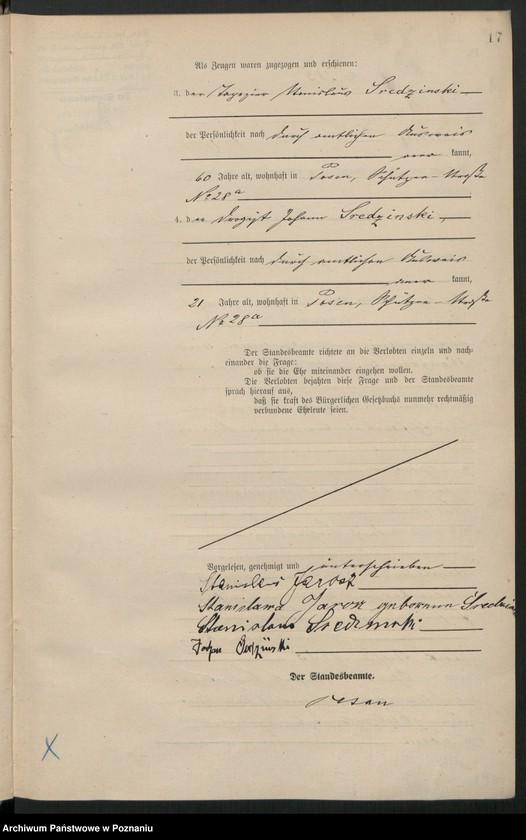 17
Als Zeugen waren zugezogen und erschienen:
3. der Tapezier Stanislaus Sredzinski
der Persönlichkeit nach durch amtlichen Ausweis
aner kannt,
60 Jahre alt, wohnhaft in Posen, Schützen-Straße
No 28a
4. der Drogist Johann Sredzinski
der Persönlichkeit nach durch amtlichen Ausweis
aner kannt,
21 Jahre alt, wohnhaft in Posen, Schützen-Straße
No 28a
Der Standesbeamte richtete an die Verlobten einzeln und nach-
einander die Frage:
ob sie die Ehe miteinander eingehen wollen.
Die Verlobten bejahten diese Frage und der Standesbeamte
sprach hierauf aus,
daß sie kraft des Bürgerlichen Gesetzbuchs nunmehr rechtmäßig
verbundene Eheleute seien.
Vorgelesen, genehmigt und unterschrieben
Stanislaus Jarosz
Stanislawa Jarosz geborenen
Stanislaus Sredzinski
Der Standesbeamte.
X
Archiwum Państwowe w Poznaniu